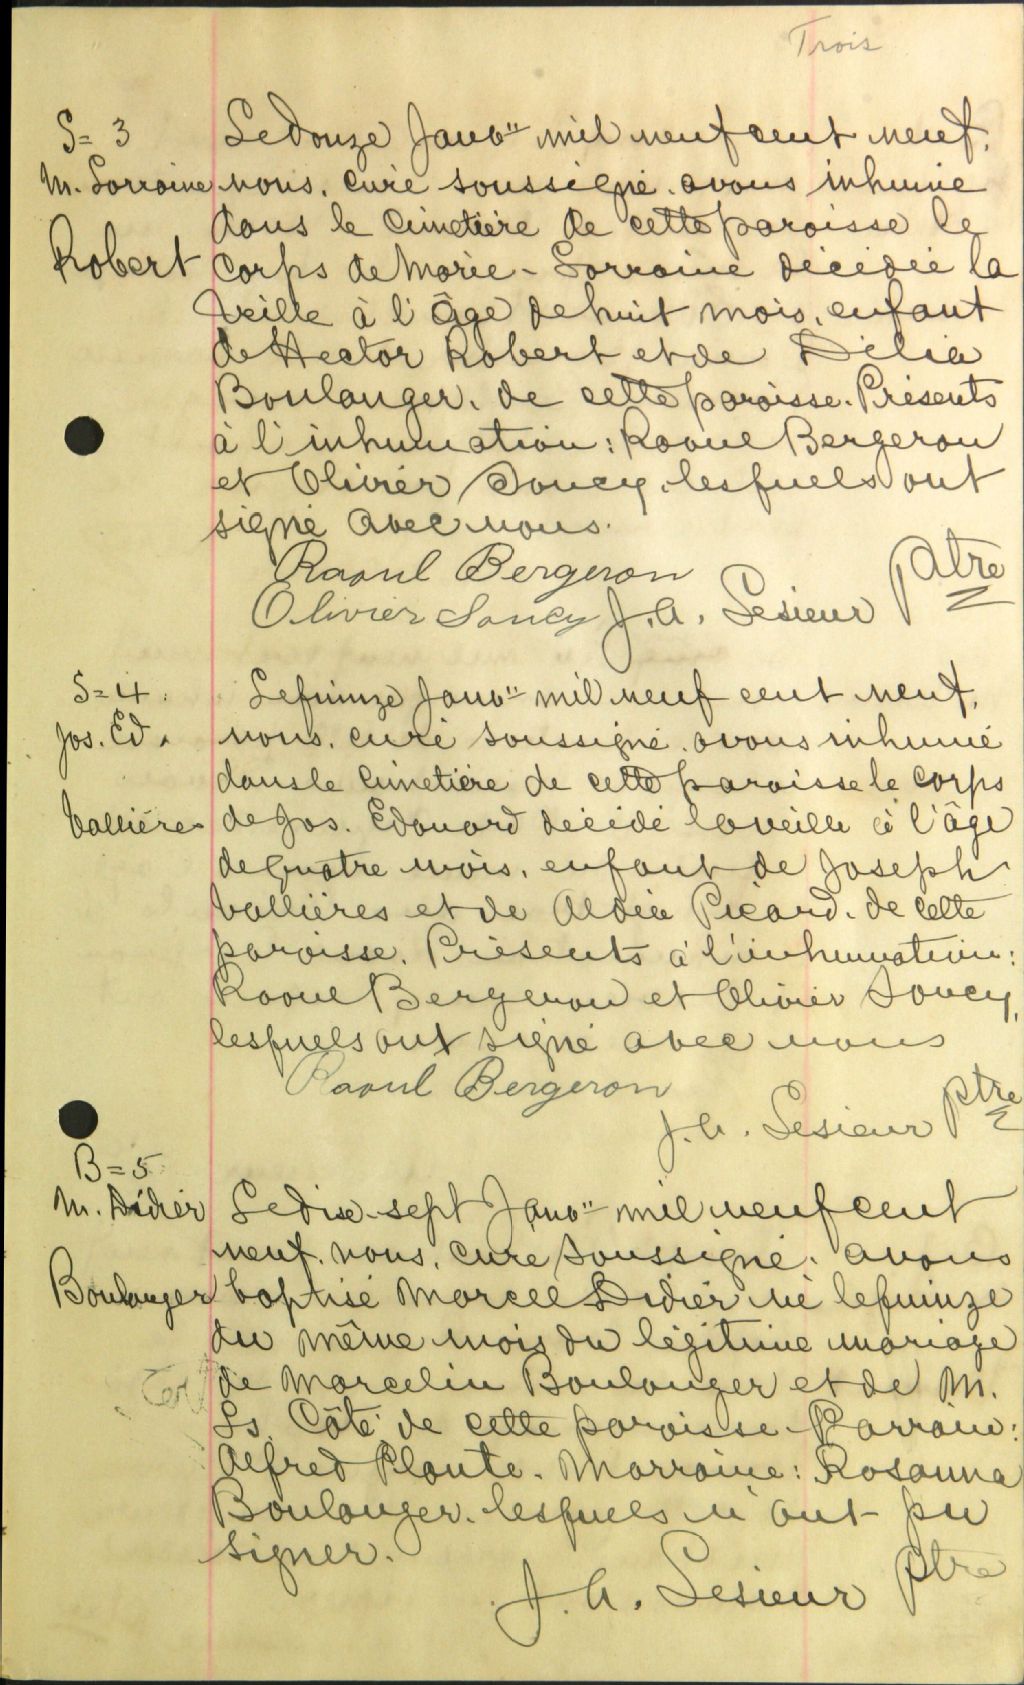 Trois
S=3
M. Lorraine
Robert
Le douze Janv" mil neuf cent neuf,
nous, curé soussigné, avons inhumé
dans le cimetière de cette paroisse le
corps de Marie-Lorraine décédée la
veille à l'âge de huit mois, enfant
de Hector Robert et de Délia
Boulanger, de cette paroisse. Présents
à l'inhumation: Raoul Bergeron
et Olivier Soucy, lesquels ont
signé avec nous.
Raoul Bergeron
Olivier Soucy J. A. Lesieur Ptre
S=4
Jos. Ed.
Vallières
Le quinze Janv" mil neuf cent neuf,
nous, curé soussigné, avons inhumé
dans le cimetière de cette paroisse le corps
de Jos. Edouard décédé la veille à l'âge
de quatre mois, enfant de Joseph
Vallières et de Aldéa Picard, de cette
paroisse. Présents à l'inhumation:
Raoul Bergeron et Olivier Soucy,
lesquels ont signé avec nous
Raoul Bergeron
J. A. Lesieur Ptre
B=5
M. Didier
Boulanger
Le dix-sept Janv" mil neuf cent
neuf, nous, curé soussigné, avons
baptisé Marcel Didier né le quinze
du même mois du légitime mariage
de Marcelin Boulanger et de M.
Ls Côté de cette paroisse. Parrain:
Alfred Plante. Marraine: Rosanna
Boulanger, lesquels n'ont pu
signer.
J. A. Lesieur Ptre